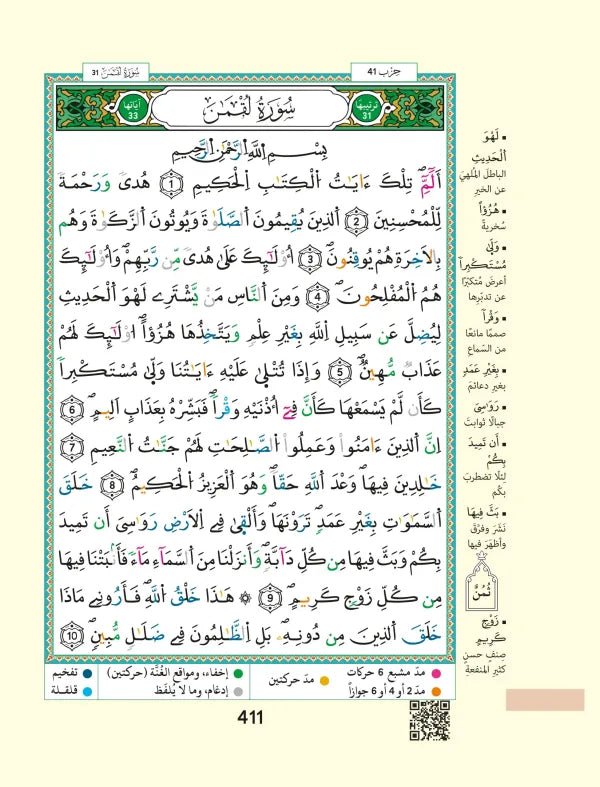 سُورَةُ لُقْمَٰنَ 31
حِزْب 41
آيَاتُهَا 33
سُورَةُ لُقْمَٰنَ
تَرْتِيبُهَا 31
بِسْمِ اِ۬للَّهِ اِ۬لرَّحْمَٰنِ اِ۬لرَّحِيمِ
أَلَٓمِّٓۖ تِلْكَ ءَايَٰتُ اُ۬لْكِتَٰبِ اِ۬لْحَكِيمِ 1 هُدىٗ وَرَحْمَةٗ
لِّلْمُحْسِنِينَ 2 اَ۬لذِينَ يُقِيمُونَ اَ۬لصَّلَوٰةَ وَيُوتُونَ اَ۬لزَّكَوٰةَ وَهُم
بِالَاخِرَةِ هُمْ يُوقِنُونَۖ 3 أُوْلَٰٓئِكَ عَلَىٰ هُدىٗ مِّن رَّبِّهِمْۖ وَأُوْلَٰٓئِكَ
هُمُ اُ۬لْمُفْلِحُونَۖ 4 وَمِنَ اَ۬لنَّاسِ مَنْ يَّشْتَرِے لَهْوَ اَ۬لْحَدِيثِ
لِيُضِلَّ عَن سَبِيلِ اِ۬للَّهِ بِغَيْرِ عِلْمٖ وَيَتَّخِذُهَا هُزُؤاًۖ اُوْلَٰٓئِكَ لَهُمْ
عَذَابٞ مُّهِينٞۖ 5 وَإِذَا تُتْلَىٰ عَلَيْهِ ءَايَٰتُنَا وَلَّىٰ مُسْتَكْبِراٗ
كَأَن لَّمْ يَسْمَعْهَا كَأَنَّ فِےٓ أُذْنَيْهِ وَقْراٗۖ فَبَشِّرْهُ بِعَذَابٍ اَلِيمٍۖ 6
اِنَّ اَ۬لذِينَ ءَامَنُواْ وَعَمِلُواْ اُ۬لصَّٰلِحَٰتِ لَهُمْ جَنَّٰتُ اُ۬لنَّعِيمِ 7
خَٰلِدِينَ فِيهَا وَعْدَ اَ۬للَّهِ حَقّاٗۖ وَهُوَ اَ۬لْعَزِيزُ اُ۬لْحَكِيمُۖ 8 خَلَقَ
اَ۬لسَّمَٰوَٰتِ بِغَيْرِ عَمَدٖ تَرَوْنَهَاۖ وَأَلْقَىٰ فِے اِ۬لَارْضِ رَوَٰسِيَ أَن تَمِيدَ
بِكُمْ وَبَثَّ فِيهَا مِن كُلِّ دَآبَّةٖۖ وَأَنزَلْنَا مِنَ اَ۬لسَّمَآءِ مَآءٗ فَأَنۢبَتْنَا فِيهَا
مِن كُلِّ زَوْجٖ كَرِيمٍۖ 9 ۞ هَٰذَا خَلْقُ اُ۬للَّهِۖ فَأَرُونِے مَاذَا
خَلَقَ اَ۬لذِينَ مِن دُونِهِۦۖ بَلِ اِ۬لظَّٰلِمُونَ فِے ضَلَٰلٖ مُّبِينٖۖ 10
▪ لَهْوَ
اَ۬لْحَدِيثِ
الباطلَ المُلْهِيَ
عن الخيرِ
▪ هُزُؤاً
سُخريةً
▪ وَلَّىٰ
مُسْتَكْبِراٗ
أعرضَ مُتكبّرًا
عن تدبّرِها
▪ وَقْراٗ
صممًا مانعًا
من السّماعِ
▪ بِغَيْرِ عَمَدٖ
بغيرِ دعائمَ
▪ رَوَٰسِيَ
جبالًا ثوابتَ
▪ أَن تَمِيدَ
بِكُمْ
لئلّا تضطربَ
بكُم
▪ بَثَّ فِيهَا
نَشَرَ وفرَّقَ
وأظهرَ فيها
ثُمُنٌ
▪ زَوْجٖ
كَرِيمٍ
صِنفٍ حسنٍ
كثيرِ المنفعةِ
مدّ مشبع 6 حركات
مدّ 2 أو 4 أو 6 جوازاً
مدّ حركتين
إخفاء، ومواقع الغُنَّة (حركتين)
إدغام، وما لا يُلفَظ
تفخيم
قلقلة
411